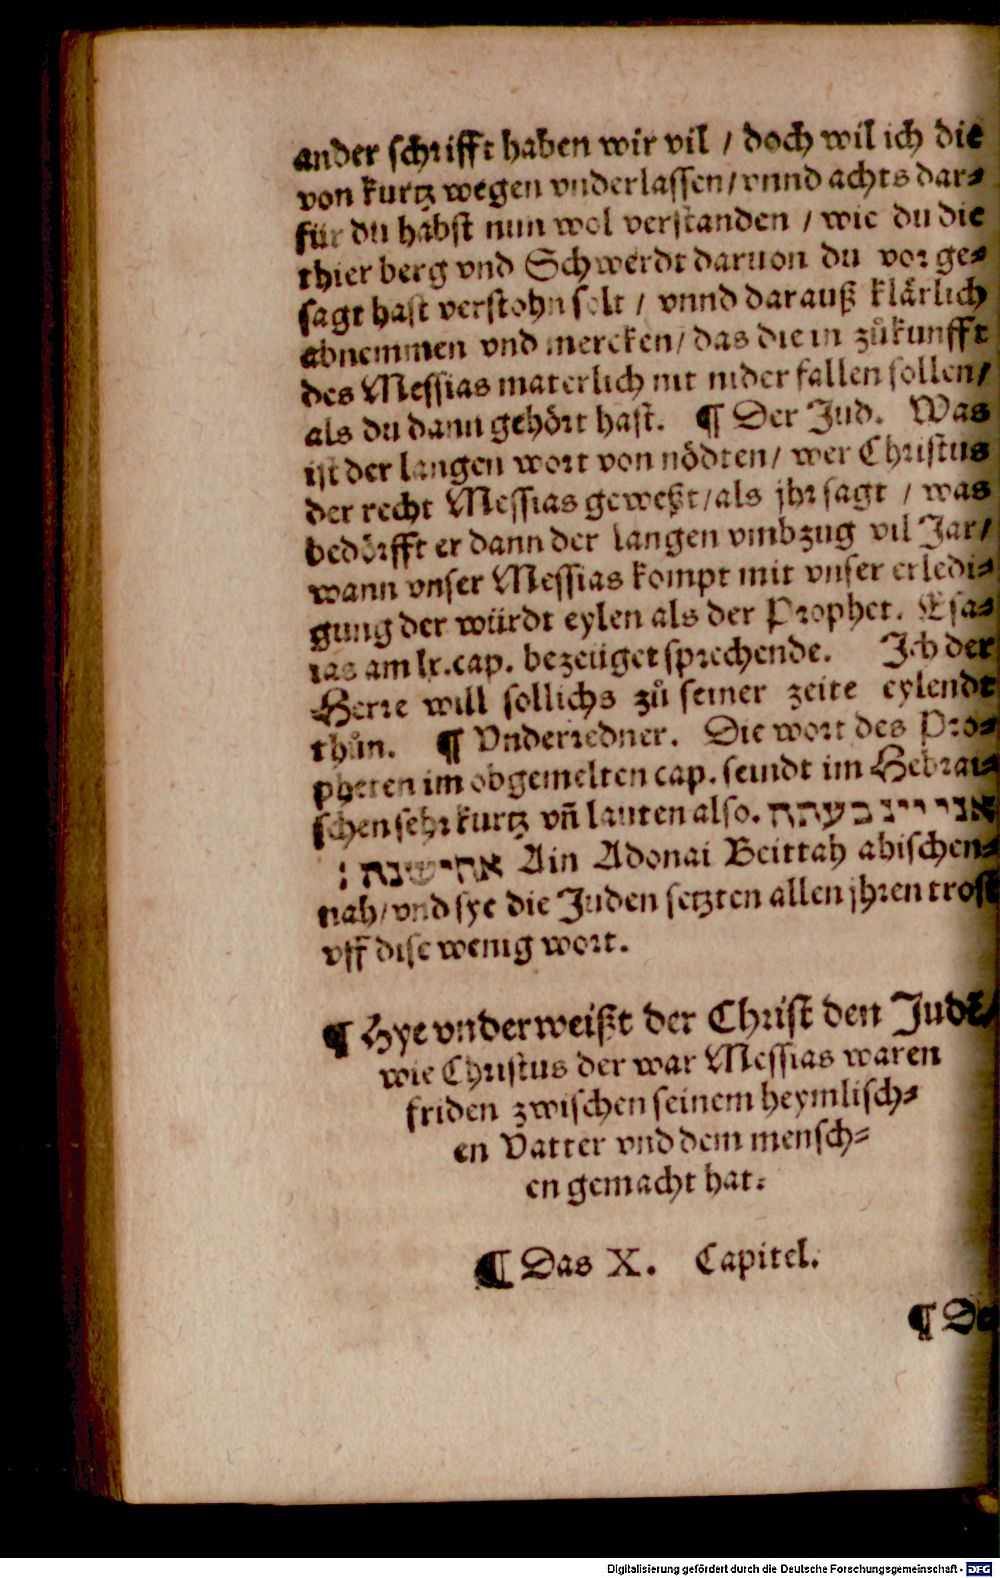 ander schrifft haben wir vil / doch wil ich die
von kurtz wegen vnderlassen / vnnd achts dar⸗
für du habst nun wol verstanden / wie du die
thier berg vnd Schwerdt daruon du vor ge⸗
sagt hast verstohn solt / vnnd darauß klärlich
abnemmen vnd mercken / das die in zůkunfft
des Messias materlich nit nider fallen sollen /
als du dann gehört hast. ¶ Der Jud. Was
ist der langen wort von nödten / wer Christus
der recht Messias geweßt / als jhr sagt / was
bedörfft er dann der langen vmbzug vil Jar /
wann vnser Messias kompt mit vnser erledi⸗
gung der würdt eylen als der Prophet. Esa⸗
ias am lx. cap. bezeuget sprechende. Ich der
Herre will sollichs zů seiner zeite eylendt
thůn. ¶ Vnderredner. Die wort des Pro⸗
pheten im obgemelten cap. seindt im Hebrai⸗
schen sehr kurtz vñ lauten also. אני ייי בעתה
אחישנה : Ain Adonai Beittah abischen⸗
nah / vnd sye die Juden setzten allen jhren trost
vff dise wenig wort.
¶ Hye vnderweißt der Christ den Judē /
wie Christus der war Messias waren
friden zwischen seinem heymlisch⸗
en Vatter vnd dem mensch⸗
en gemacht hat.
¶ Das X. Capitel.
¶ De
Digitalisierung gefördert durch die Deutsche Forschungsgemeinschaft - DFG